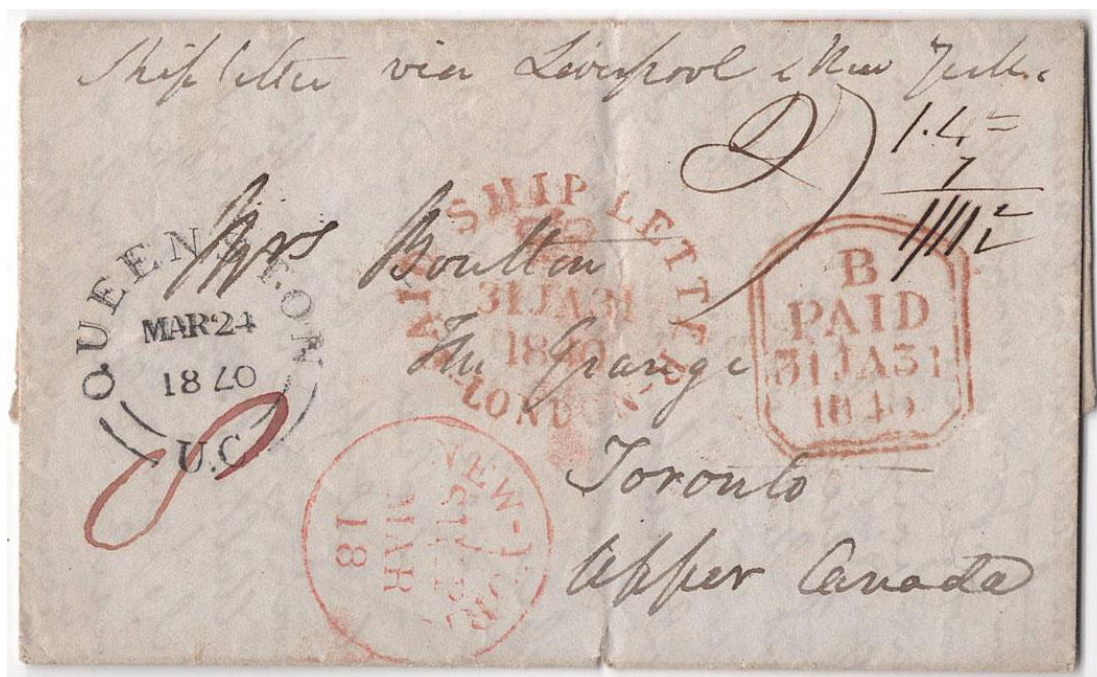 Ship letter via Liverpool & New York
1.4
7
1/11½
Mrs Boulton
The Grange
Toronto
Upper Canada
QUEENSTON
MAR 24
1840
U.C
PAID SHIP LETTER
31 JA 31
1840
LONDON
B
PAID
31 JA 31
1840
NEW-YORK
SHIP
MAR
18
8